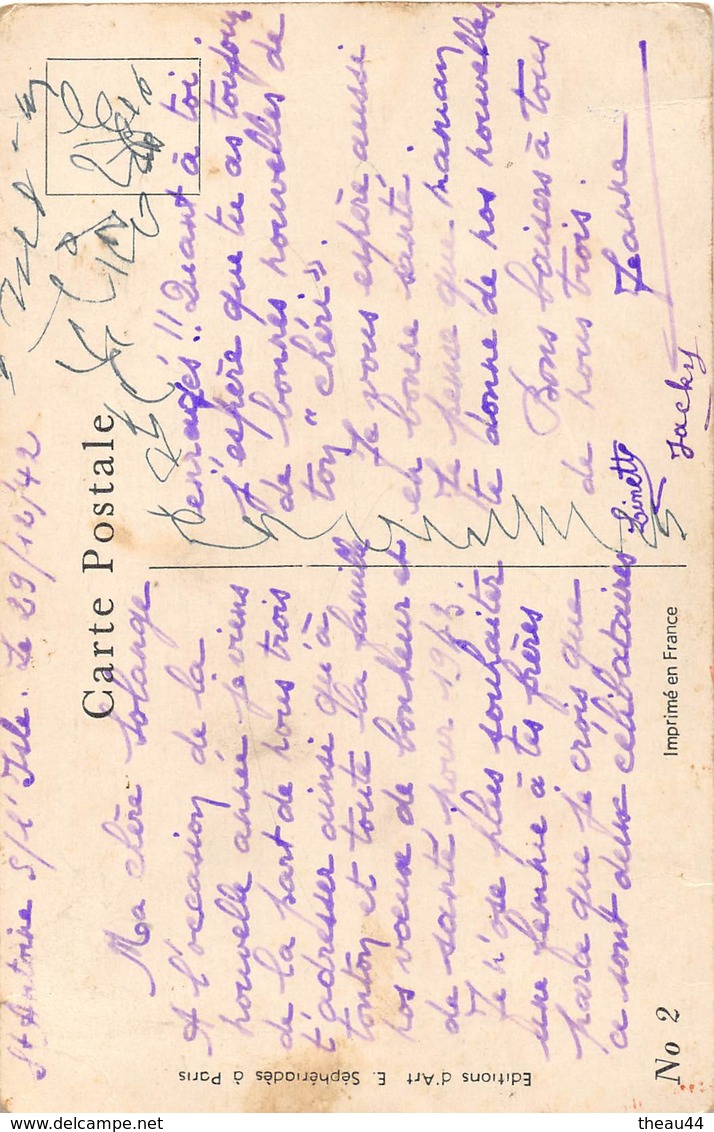 St Antoine S/l'Isle. Le 29/12/42
Carte Postale
Ma chère Solange
A l'occasion de la
nouvelle année je viens
de la part de nous trois
t'adresser ainsi qu'à
tonton et toute la famille
nos vœux de bonheur et
de santé pour 1943.
Je n'ose plus souhaiter
une femme à tes frères
parce que je crois que
ce sont deux célibataires
enragés!! Quant à toi
j'espère que tu as toujours
de bonnes nouvelles de
ton "chéri".
Je vous espère aussi
en bonne santé.
Je pense que maman
te donne de nos nouvelles.
Bons baisers à tous
de nous trois.
Jeanne
Linette
Jacky
No 2
Imprimé en France
Editions d'Art E. Séphériadès à Paris
delcampe.net
theau44